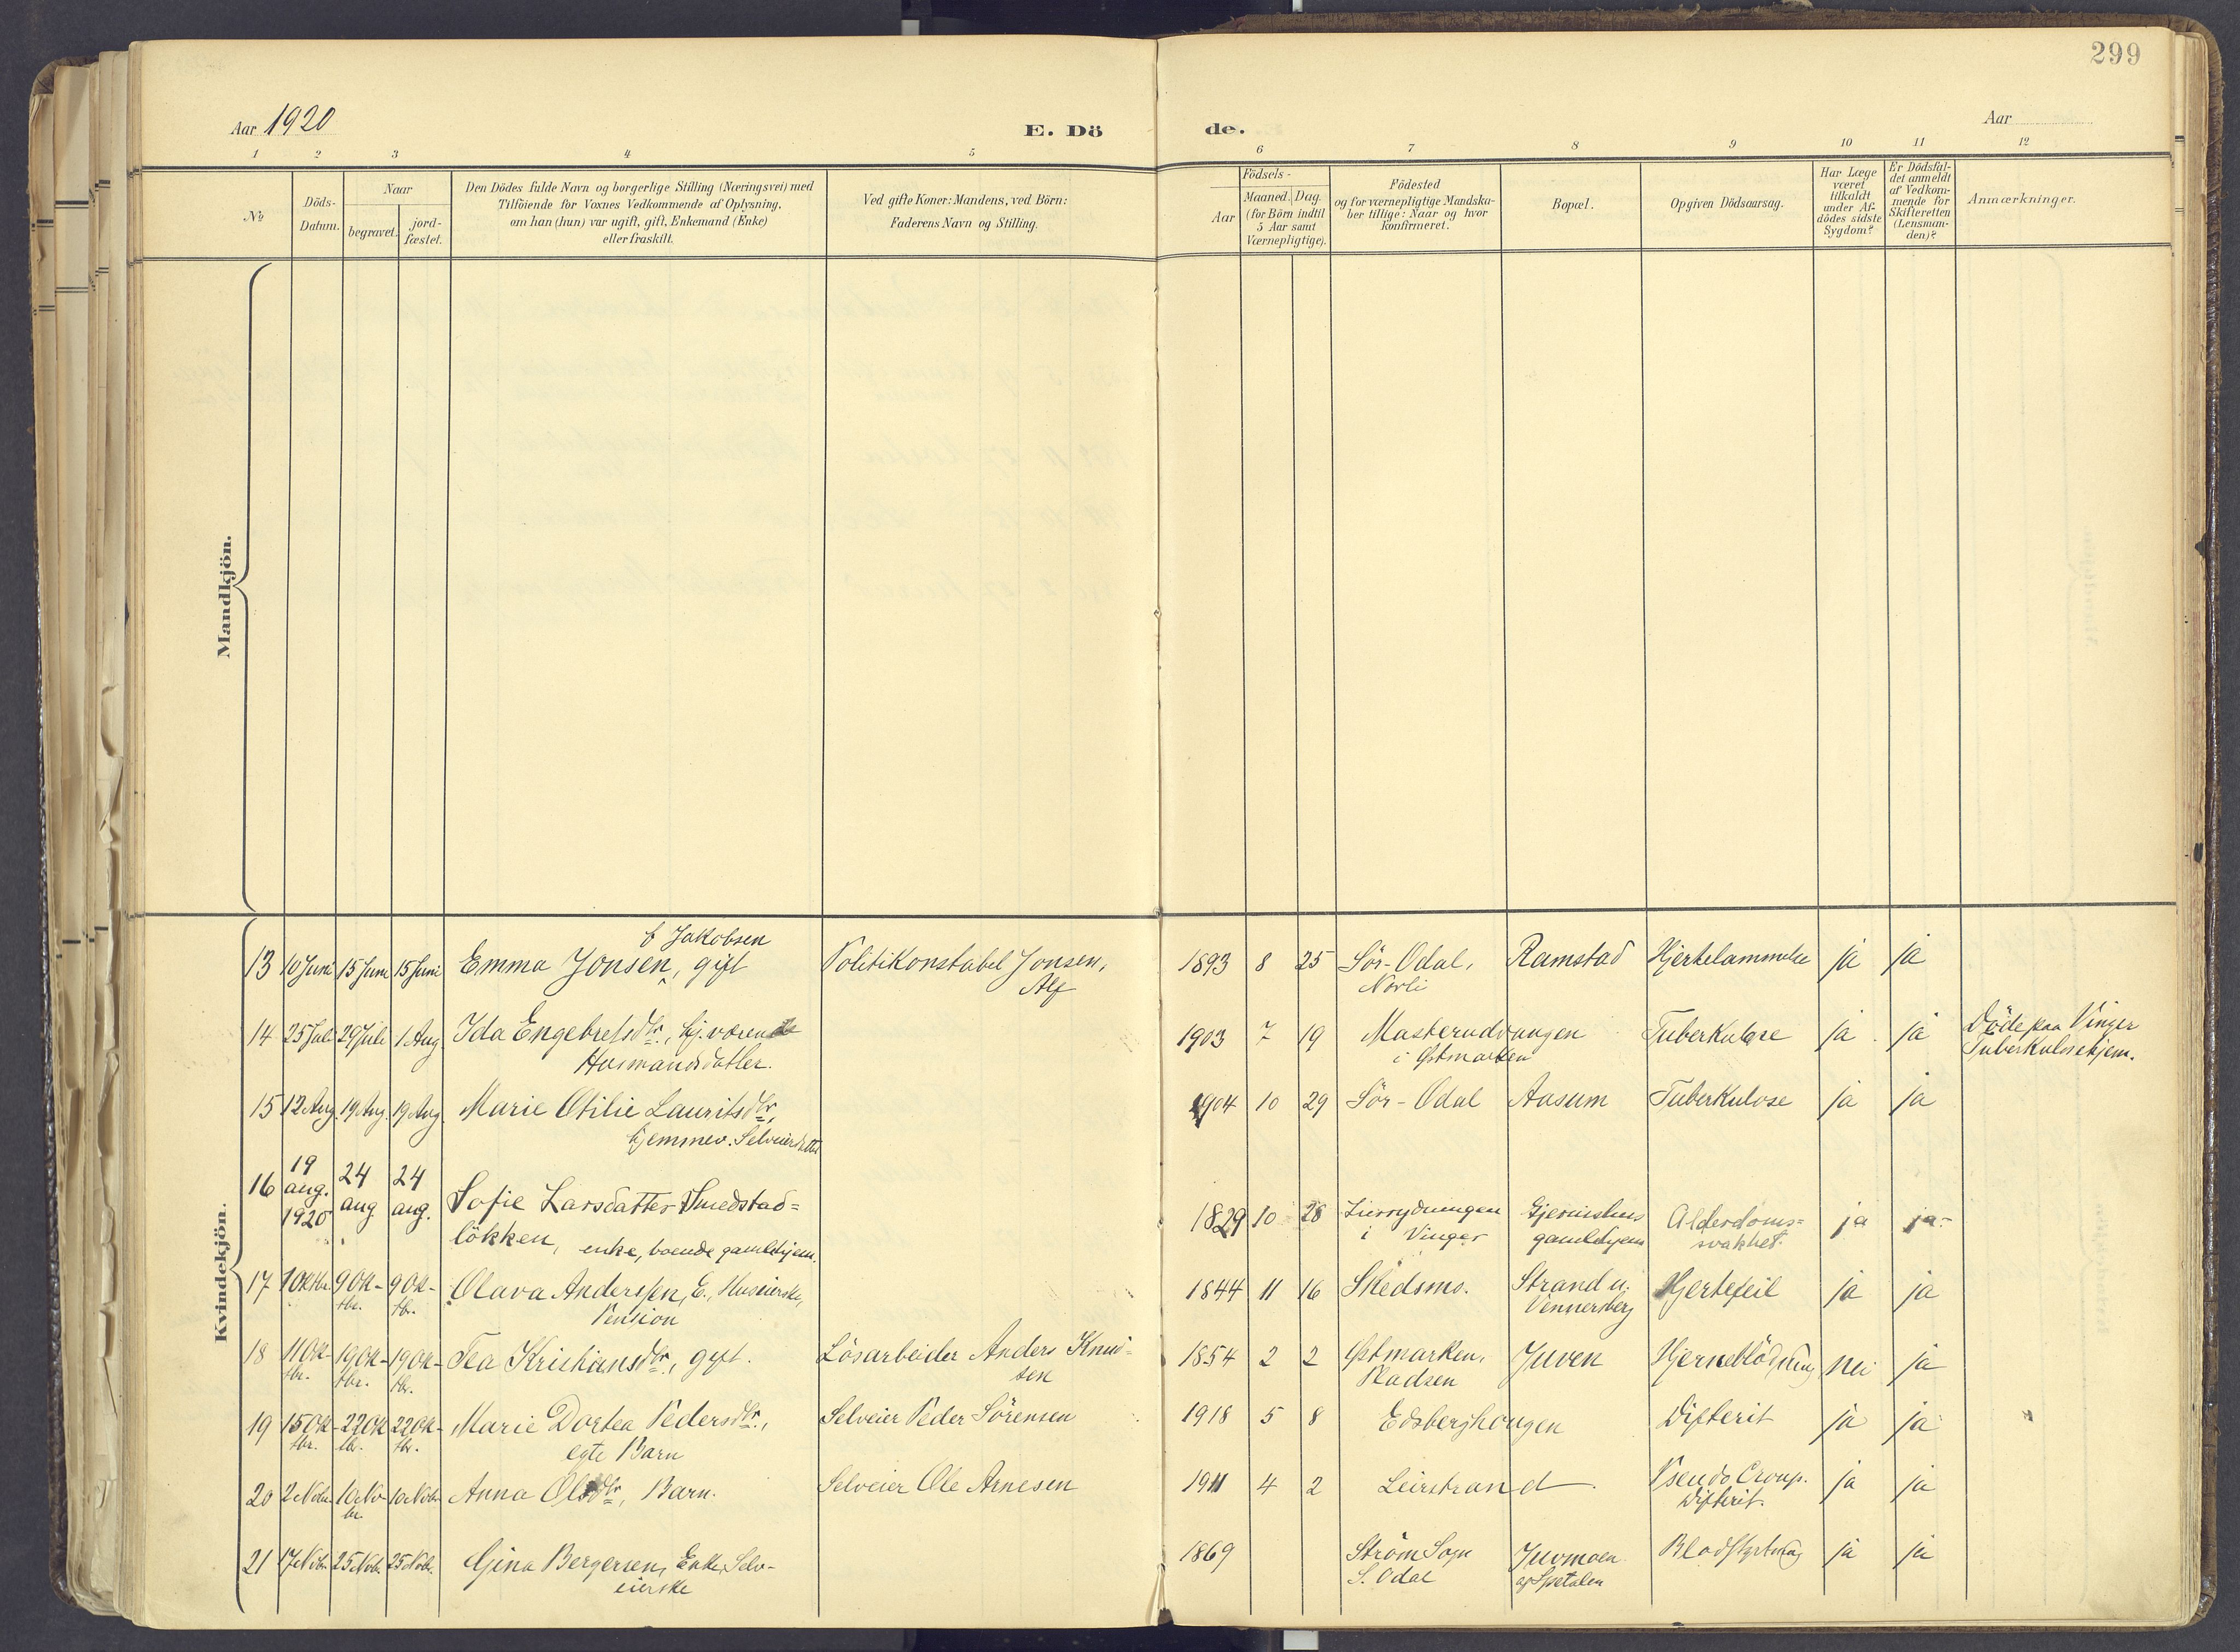 299
Aar 1920
E. Dö
de.
Aar
1 2 3 4 5 6 7 8 9 10 11 12
No
Döds-
Datum.
Naar
begravet.
jord-
fæstet.
Den Dödes fulde Navn og borgerlige Stilling (Næringsvei) med
Tilföiende for Voxnes Vedkommende af Oplysning,
om han (hun) var ugift, gift, Enkemand (Enke)
eller fraskilt.
Ved gifte Koner: Mandens, ved Börn:
Faderens Navn og Stilling.
Födsels-
Aar
Maaned. Dag.
(for Börn indtil
5 Aar samt
Værnepligtige).
Födested
og for værnepligtige Mandska-
ber tillige: Naar og hvor
konfirmeret.
Bopæl.
Opgiven Dödsaarsag.
Har Læge
været
tilkaldt
under Af-
dödes sidste
Sygdom?
Er Dödsfal-
det anmeldt
af Vedkom-
mende for
Skifteretten
(Lensman-
den)?
Anmærkninger.
Mandkjön.
Kvindekjön.
f Jakobsen
13 10 Juni 15 Juni 15 Juni Emma Jonsen, gift Politikonstabel Jonsen, 1893 8 25 Sör-Odal, Ramstad Hjertelammelse ja ja
Alf Norli
14 25 Juli 29 Juli 1 Aug. Ida Engebretsdtr., hj. værende 1903 7 19 Masterudvangen Tuberkulose ja ja Döde paa Vinger
Husmandsdatter. i Østmarken Tuberkulosehjem.
15 12 Aug. 19 Aug. 19 Aug. Marie Otilie Lauritsdtr., 1904 10 29 Sör-Odal Aasum Tuberkulose ja ja
hjemmev. Selveierdatter
16 19 aug. 1920 24 aug 24 aug. Sofie Larsdatter Smedstad= 1829 10 28 Lierrydningen gamlehjem Alderdoms= ja ja-
lökken, enke, boende gamlehjem. i Vinger svakhet.
17 1 Oktbr. 9 Ok- 9 Ok- Olava Anderssen, E., Huseierske, 1844 11 16 Skedsmo. Strand u. Hjertefeil ja ja
tbr. tbr. Pension Vennersberg
18 11 Ok- 19 Ok- 19 Ok- Tea Kristiansdtr., gift. Lösarbeider Anders Knud- 1854 2 2 Østmarken, Juven Hjerneblödning nei ja
tbr. tbr. tbr. sen Pladsen
19 15 Ok- 22 Ok- 22 Ok- Marie Dortea Pedersdtr., Selveier Peder Sörensen 1918 5 8 Edsberghougen Difterit ja ja
tbr. tbr. tbr. egte Barn
20 2 Novbr. 10 Nov- 10 Novbr. Anna Olsdtr., Barn. Selveier Ole Arnesen 1911 4 2 Leirstrand Pseudo Croup. ja ja
br. Difterit.
21 17 Novbr. 25 Novbr. 25 Novbr. Gina Bergersen, Enke, Selv- 1869 Ström Sogn Juvmoen Blodstyrtning ja ja
eierske S. Odal